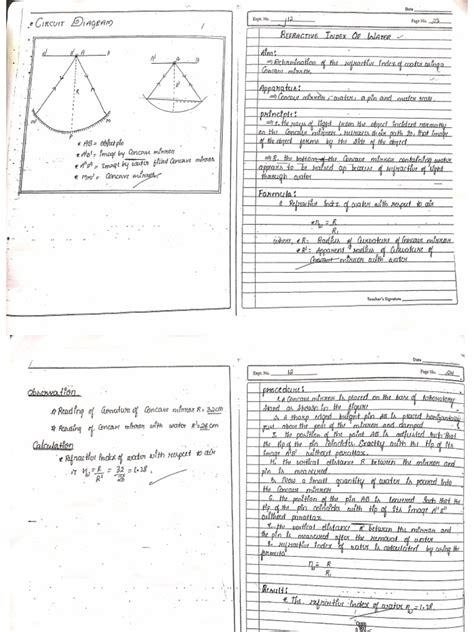 * CIRCUIT DIAGRAM
* AB = object pin
* A'B' = Image by Concave mirror
* A"B" = Image by water filled Concave mirror
* MPM' = Concave mirror
Date
Expt. No. 12
Page No. 23
REFRACTIVE INDEX OF WATER
Aim:
⇒ Determination of the refractive Index of water using a
Concave mirror.
Apparatus:
⇒ Concave mirror, water, a pin and meter scale.
principle:
of light from the object incident normally
on the Concave mirror, retraces their path so that image
of the object forms by the side of the object
the bottom of the Concave mirror containing water
appears to be raised up because of refractive of light
through water
Formula:
Refractive Index of water with respect to air
n = R
R'
where, * R = Radius of Curvature of Concave mirror
* R' = Apparent radius of Curvature of
Concave mirror with water
Teacher's Signature
Observation:
Reading of Curvature of Concave mirror R = 32cm
Reading of Concave mirror with water R' = 25 cm
Calculation
* Refractive Index of water with respect to air
n = R = 32 = 1.28
R' 25
Date
Expt. No. 12
Page No. 24
procedure:
1. A Concave mirror is placed on the base of laboratory
stand as shown in the figure
2. A sharp edged bright pin AB is placed horizontally
just above the pole of the mirror and clamped
3. the position of the point AB is adjusted such that
the tip of the pin coincides exactly with the tip of its
Image A'B' without parallax.
4. the vertical distance R between the mirror and
pin is measured
5. Now a small quantity of water is poured into
the Concave mirror
6. the position of the pin AB is lowered such that the
tip of the pin coincide with tip of its Image A"B"
without parallax
7. the vertical distance R' between the mirror and
the pin is measured after the removal of water
8. refractive Index of water is calculated by using the
formula
n = R
R'
Result:
* The refractive Index of water n = 1.28.